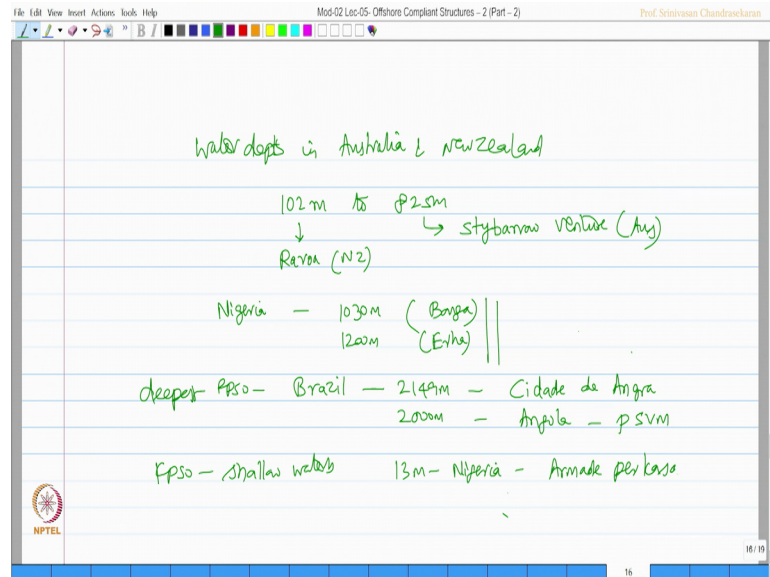 File Edit View Insert Actions Tools Help
Mod-02 Lec-05- Offshore Compliant Structures – 2 (Part – 2)
Prof. Srinivasan Chandrasekaran
B I
Water depts in Australia & New Zealand
102 m to 825m
↓ ↳ stybarrow venture (Aus)
Raroa (NZ)
Nigeria – 1030m (Bonga)
1200m (Erha)
deeper FPSO – Brazil – 2149m – Cidade de Angra
2000m – Angola – PSVM
FPSO – Shallow waters 13m – Nigeria – Armade perkasa
NPTEL
16/19
16